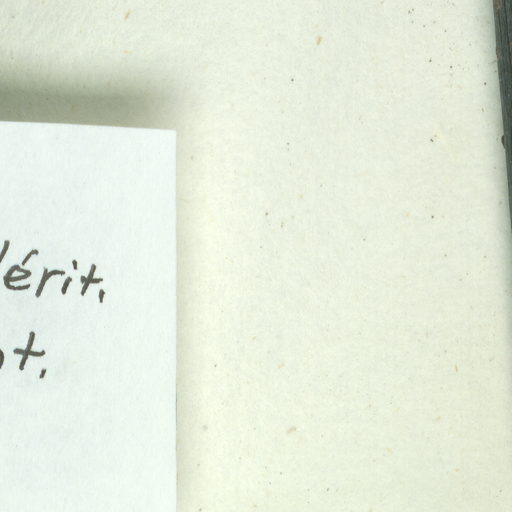 érit.
t.